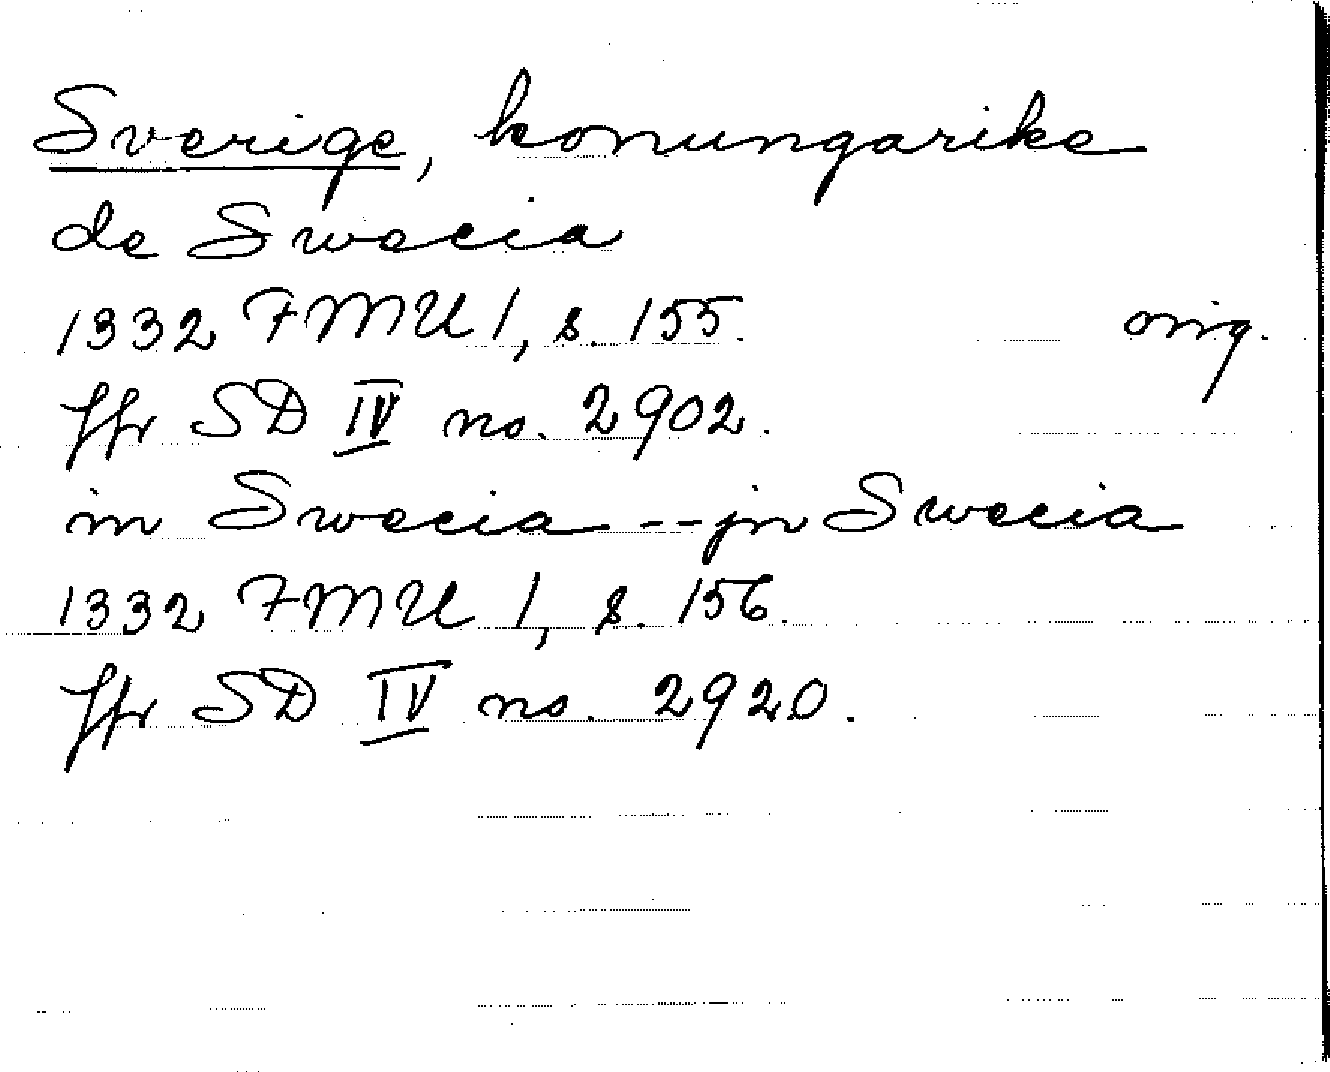 Sverige, konungarike
de Swecia
1332 FMU 1, s. 155. orig.
jfr SD IV no. 2902.
in Swecia -- jn Swecia
1332 FMU 1, s. 156.
jfr SD IV no. 2920.